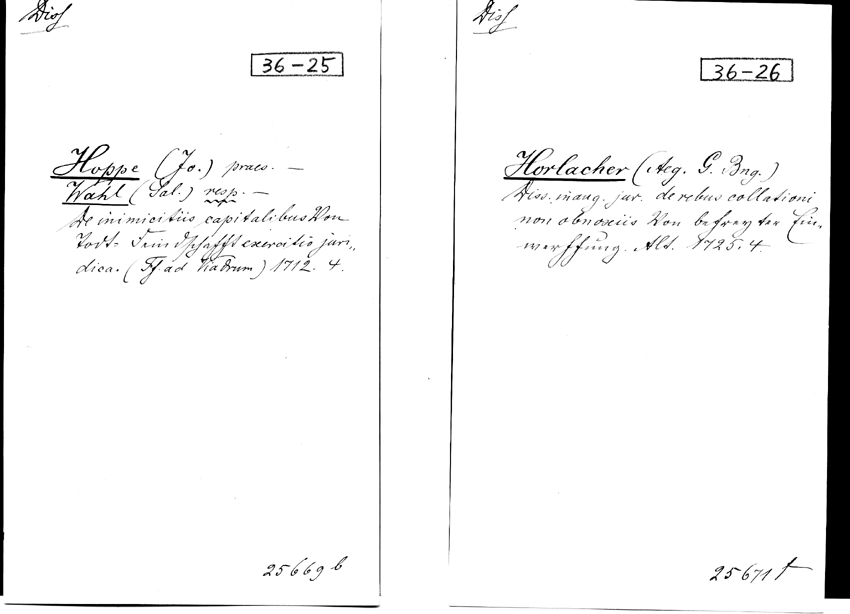 Diss
36-25
Hoppe (Jo.) praes. —
Wahl (Sal.) resp. —
De inimicitiis capitalibus Von
Todt- Feindschafft exercitio juri„
dica. (Ff. ad Viadrum) 1712. 4.
25669 b
Diss
36-26
Horlacher (Aeg. G. Bng.)
Diss. inaug. jur. de rebus collationi
non obnoxiis Von befreyter Ein„
werffung. Alt. 1725. 4.
25671 t